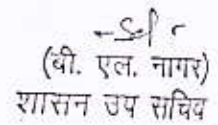 (बी. एल. नागर)
शासन उप सचिव